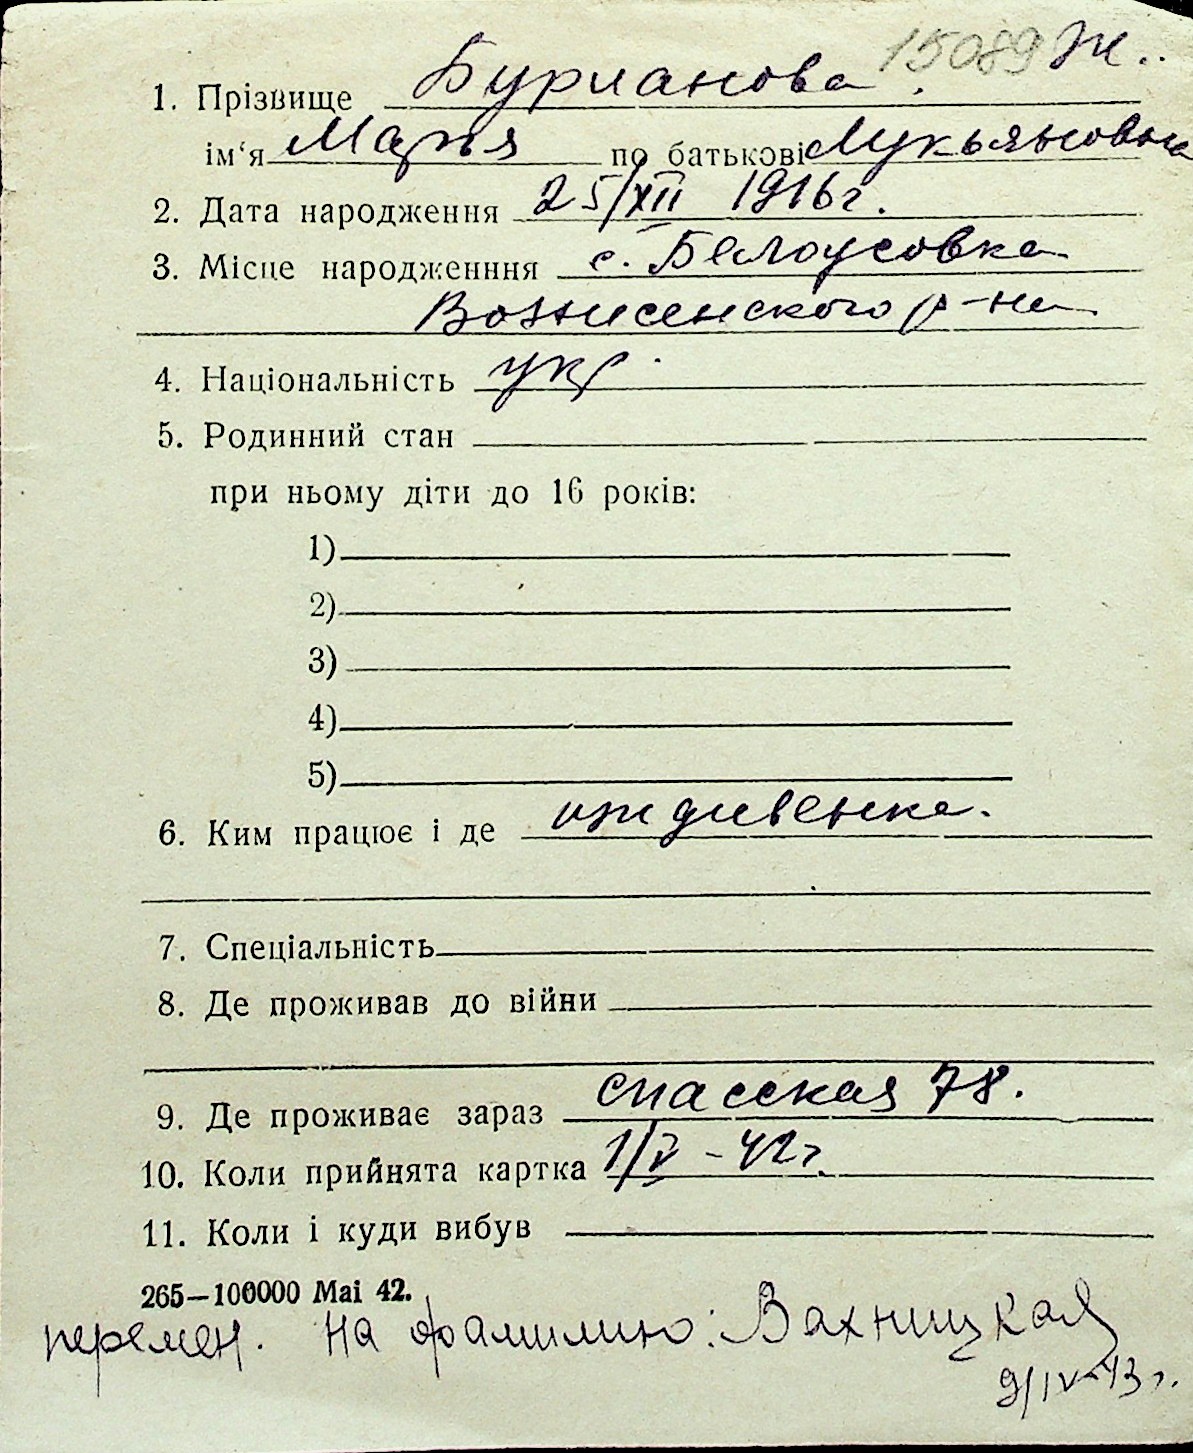 15089 Ж..
1. Прізвище Бурианова.
ім‘я Марья по батькові Лукьяновна
2. Дата народження 25/XII 1916г.
3. Місце народженння с. Белоусовка
Вознисенского р-на
4. Національність укр.
5. Родинний стан
при ньому діти до 16 років:
1)
2)
3)
4)
5)
6. Ким працює і де иждивенка.
7. Спеціальність
8. Де проживав до війни
9. Де проживає зараз Спасская 78.
10. Коли прийнята картка 1/V - 42г.
11. Коли і куди вибув
265—100000 Mai 42.
перемен. на фамилию: Вахницкая
9/IV-43г.